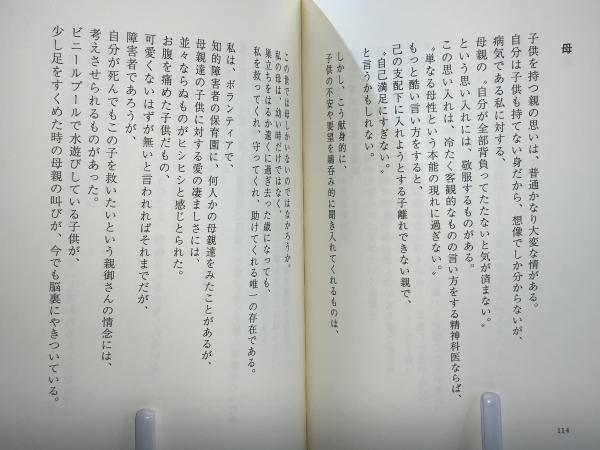 母
子供を持つ親の思いは、普通かなり大変な情がある。
自分は子供も持てない身だから、想像でしか分からないが、
病気である私に対する、
母親の〝自分が全部背負ってたたないと気が済まない。〟
という思い入れには、敬服するものがある。
この思い入れは、冷たく客観的なものの言い方をする精神科医ならば、
〝単なる母性という本能の現れに過ぎない。〟
もっと酷い言い方をすると、
己の支配下に入れようとする子離れできない親で、
〝自己満足にすぎない。〟
と言うかもしれない。
しかし、こう献身的に、
子供の不安や要望を鵜呑み的に聞き入れてくれるものは、
この世では母しかいないのではなかろうか。
私の母は、幼い時だけではなく、
巣立ちをはるか遠くに過ぎ去った歳になっても、
私を救ってくれ、守ってくれ、助けてくれる唯一の存在である。
私は、ボランティアで、
知的障害者の保育園に、何人かの母親達をみたことがあるが、
母親達の子供に対する愛の凄ましさには、
並々ならぬものがヒシヒシと感じとられた。
お腹を痛めた子供だもの、
可愛くないはずが無いと言われればそれまでだが、
障害者であろうが、
自分が死んでもこの子を救いたいという親御さんの情念には、
考えさせられるものがあった。
ビニールプールで水遊びしている子供が、
少し足をすくめた時の母親の叫びが、今でも脳裏にやきついている。
114